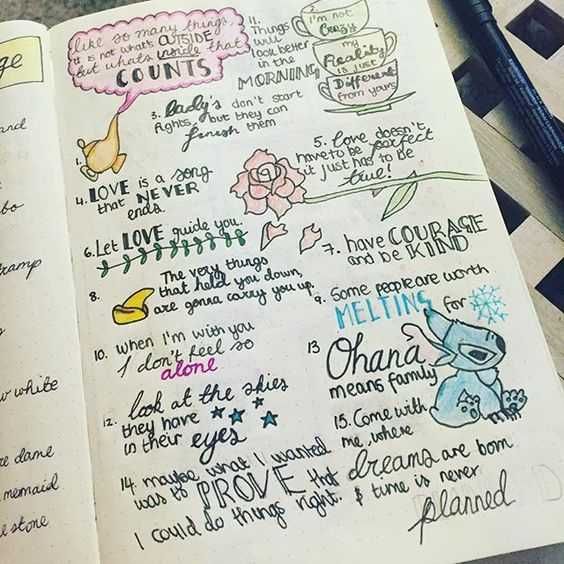 ge
and
bo
tramp
white
dame
mermaid
stone
like so many things,
it is not what's OUTSIDE
but what's inside that
COUNTS
1.
11.
Things
will
look better
in the
MORNING
2.
I'm not
Crazy
my
Reality
is just
Different
from yours
3. Lady's don't start
fights, but they can
finish them
4. LOVE is a song
that NEVER
ends.
5. Love doesn't
have to be perfect
it just has to be
true!
6. Let LOVE guide you.
7. have COURAGE
and be KIND
8. The very things
that held you down,
are gonna carry you up.
9. Some people are worth
MELTING for
10. when I'm with you
I don't feel so
alone
12. look at the skies
they have
in their eyes
13 Ohana
means family
14. maybe what I wanted
was to PROVE that
I could do things right.
15. Come with
me, where
dreams are born
& time is never
planned